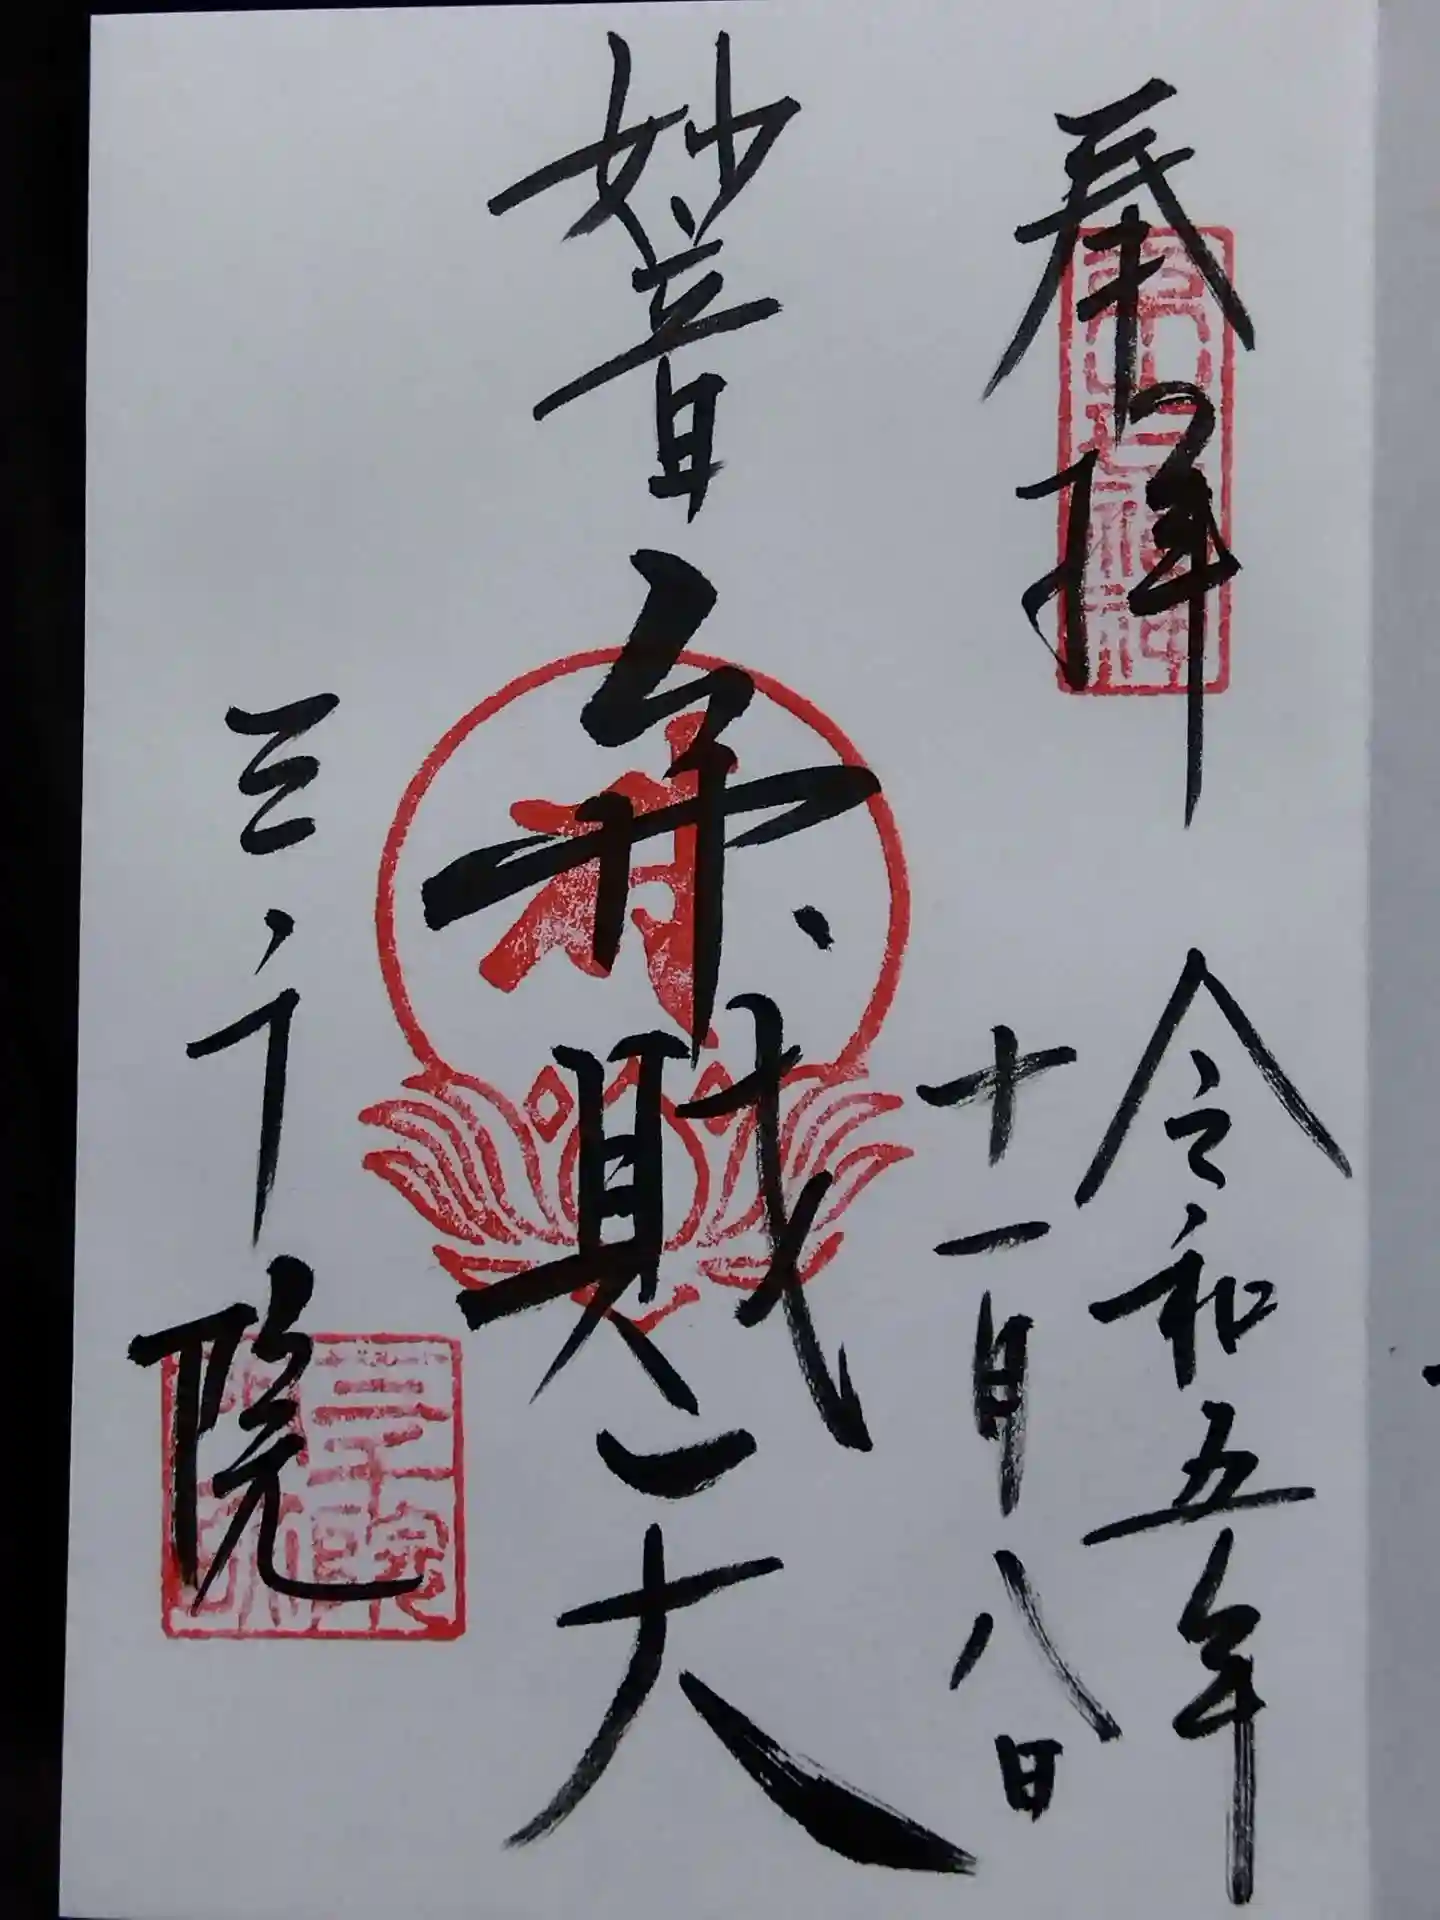 奉拝
令和五年
十一月八日
妙音弁財天
三千院